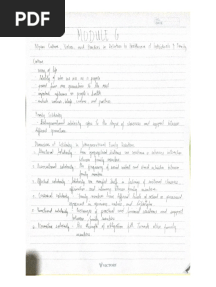 PDF
MODULE 6
Filipino Culture, Values and Practices in Relation to Healthcare of Individual & Family
Culture
- way of life
- totality of who we are as a people
- passed from one generation to the next
- important influence on people's health
- include various beliefs, customs, and practices
Family Solidarity
- Intergenerational solidarity refers to the degree of closeness and support between different generations
Dimensions of Solidarity in Intergenerational Family Relations
1. Structural Solidarity - how geographical distance can
between family members
2. Associational solidarity - the frequency of social contact and shared activities between
family members
3. Affectual solidarity - feelings of emotional closeness,
affirmation and intimacy between family members
4. Consensual solidarity - family members have different levels of actual or perceived
agreement in opinions, values and lifestyles
5. Functional solidarity - exchanges of practical and financial assistance and support
between family members
6. Normative solidarity - the strength of obligation felt towards other family
members